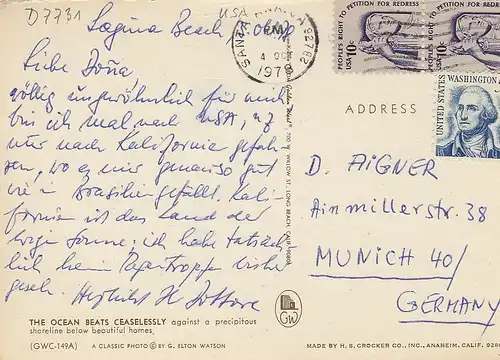 D7731
USA
Laguna Beach, 4. Okt.
SANTA ANA, CA 92702
PM
4 OCT
1978
PEOPLE'S RIGHT TO PETITION FOR REDRESS
USA 10c
PEOPLE'S RIGHT TO PETITION FOR REDRESS
USA 10c
UNITED STATES
WASHINGTON
Liebe Dora,
völlig ungewöhnlich für mich
bin ich mal nach USA, u. z.
nur nach Kalifornien gefah-
ren, wo es mir genauso gut
wie in Brasilien gefällt. Kali-
fornien ist das Land der
Sonne: ich habe tatsäch-
lich kein Regentropfen bisher
geseh. Herzlichst
700 W. WILLOW ST., LONG BEACH, CALIF. 90806
ADDRESS
D. AIGNER
Ainmillerstr. 38
MUNICH 40/
GERMANY
THE OCEAN BEATS CEASELESSLY against a precipitous
shoreline below beautiful homes.
(GWC-149A) A CLASSIC PHOTO © BY G. ELTON WATSON
GW
MADE BY H. S. CROCKER CO., INC., ANAHEIM, CALIF. 928